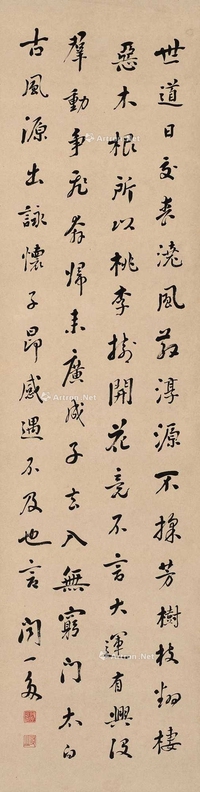 世道日交喪澆風散淳源不採芳樹枝翻棲
惡木根所以桃李樹開花竟不言大運有興沒
羣動爭飛奔歸來廣成子去入無窮門太白
古風源出詠懷子昂感遇不及也言 聞一多
Artron.Net
Artron.Net
Artron.Net